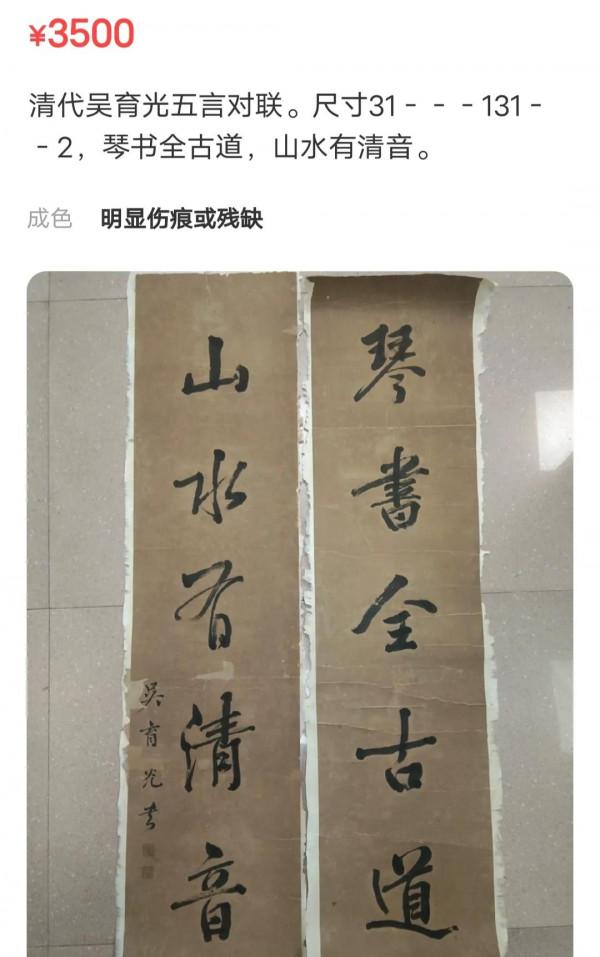 ¥3500
清代吴育光五言对联。尺寸31---131-
-2，琴书全古道，山水有清音。
成色 明显伤痕或残缺
琴書全古道
山水有清音
吳育光書